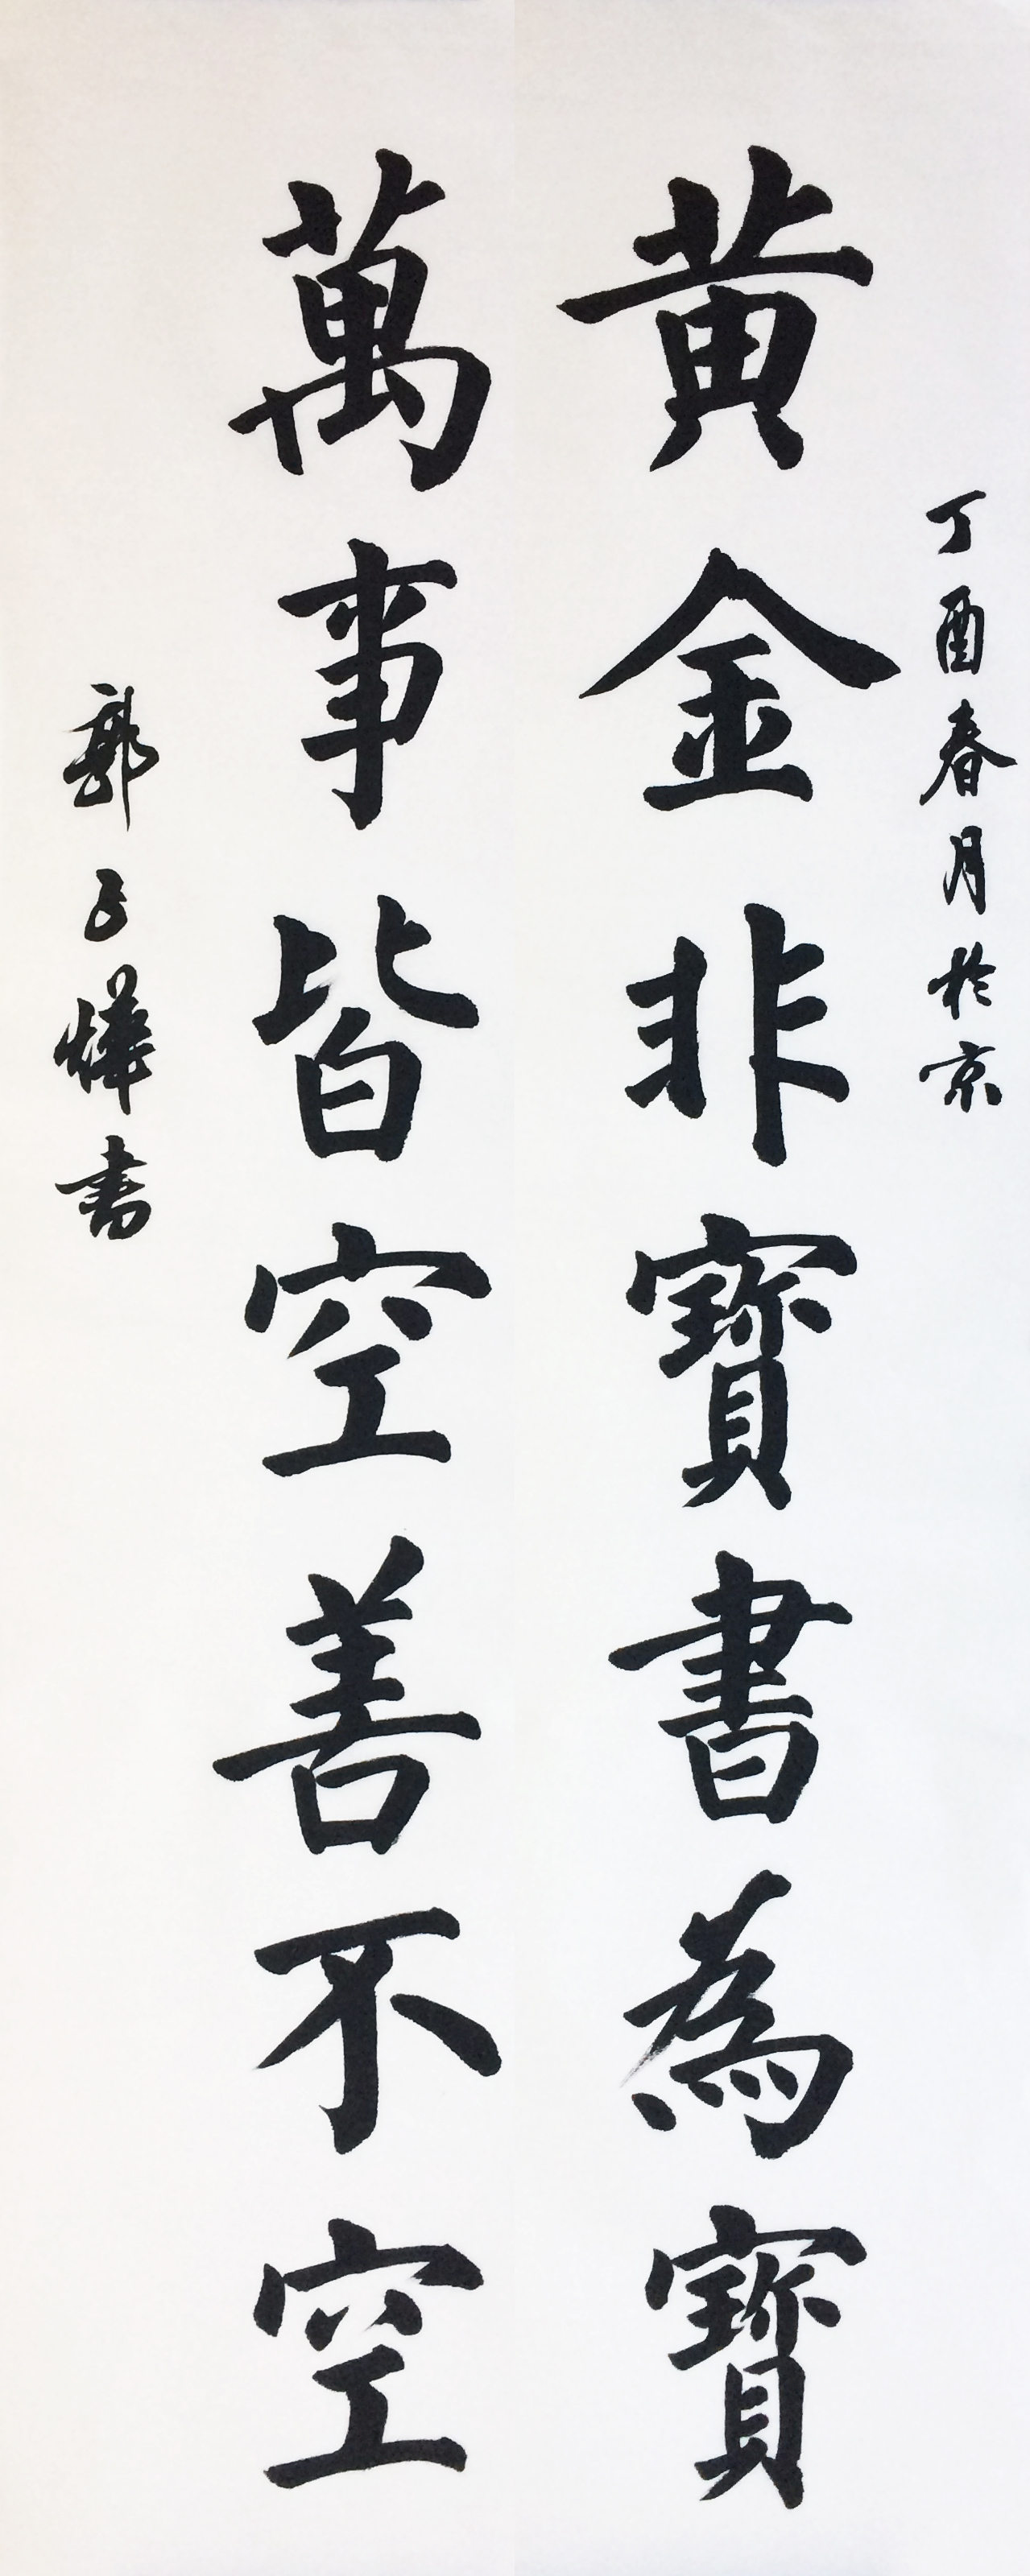 丁酉春月於京
黄金非寶書為寶
萬事皆空善不空
郭子燁书